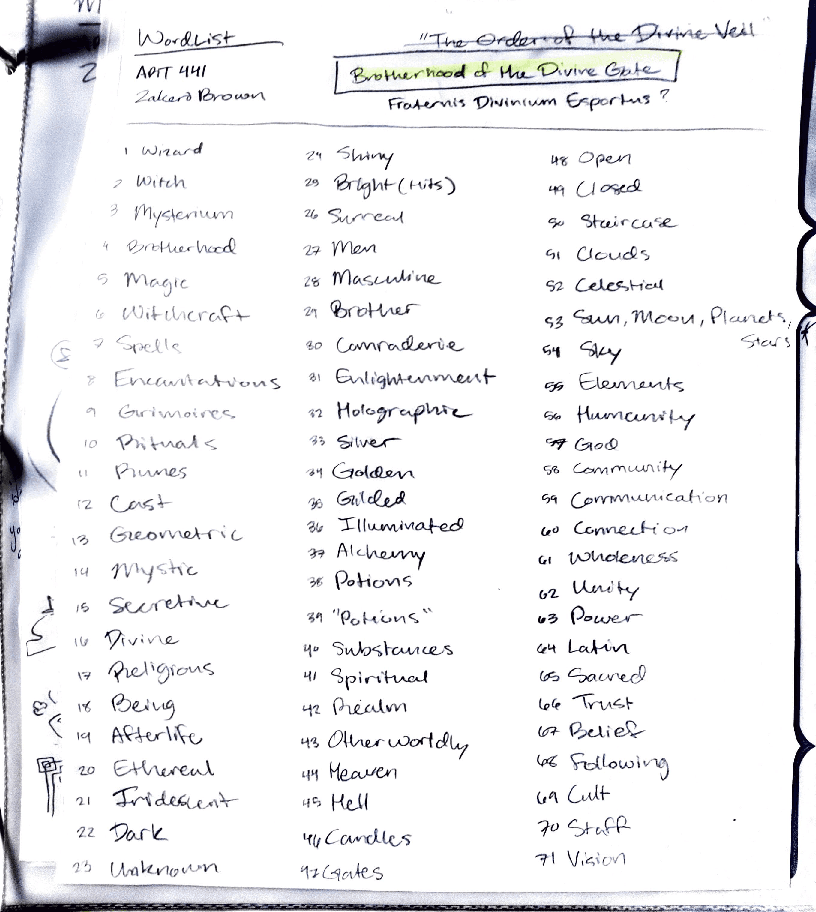 WordList
APIT 441
Zakero Brown
"The Order of the Divine Veil"
Brotherhood of the Divine Gate
Fraternis Divinium Esportus ?
1 Wizard
2 Witch
3 Mysterium
4 Brotherhood
5 Magic
6 Witchcraft
7 Spells
8 Encantations
9 Grimoires
10 Rituals
11 Runes
12 Cast
13 Geometric
14 Mystic
15 Secretive
16 Divine
17 Religious
18 Being
19 Afterlife
20 Ethereal
21 Iridescent
22 Dark
23 Unknown
24 Shiny
25 Bright (Hits)
26 Surreal
27 Men
28 Masculine
29 Brother
30 Comraderie
31 Enlightenment
32 Holographic
33 Silver
34 Golden
35 Gilded
36 Illuminated
37 Alchemy
38 Potions
39 "Potions"
40 Substances
41 Spiritual
42 Realm
43 Otherworldly
44 Heaven
45 Hell
46 Candles
47 Gates
48 Open
49 Closed
50 Staircase
51 Clouds
52 Celestial
53 Sun, Moon, Planets,
Stars
54 Sky
55 Elements
56 Humanity
57 God
58 Community
59 Communication
60 Connection
61 Wholeness
62 Unity
63 Power
64 Latin
65 Sacred
66 Trust
67 Belief
68 Following
69 Cult
70 Staff
71 Vision